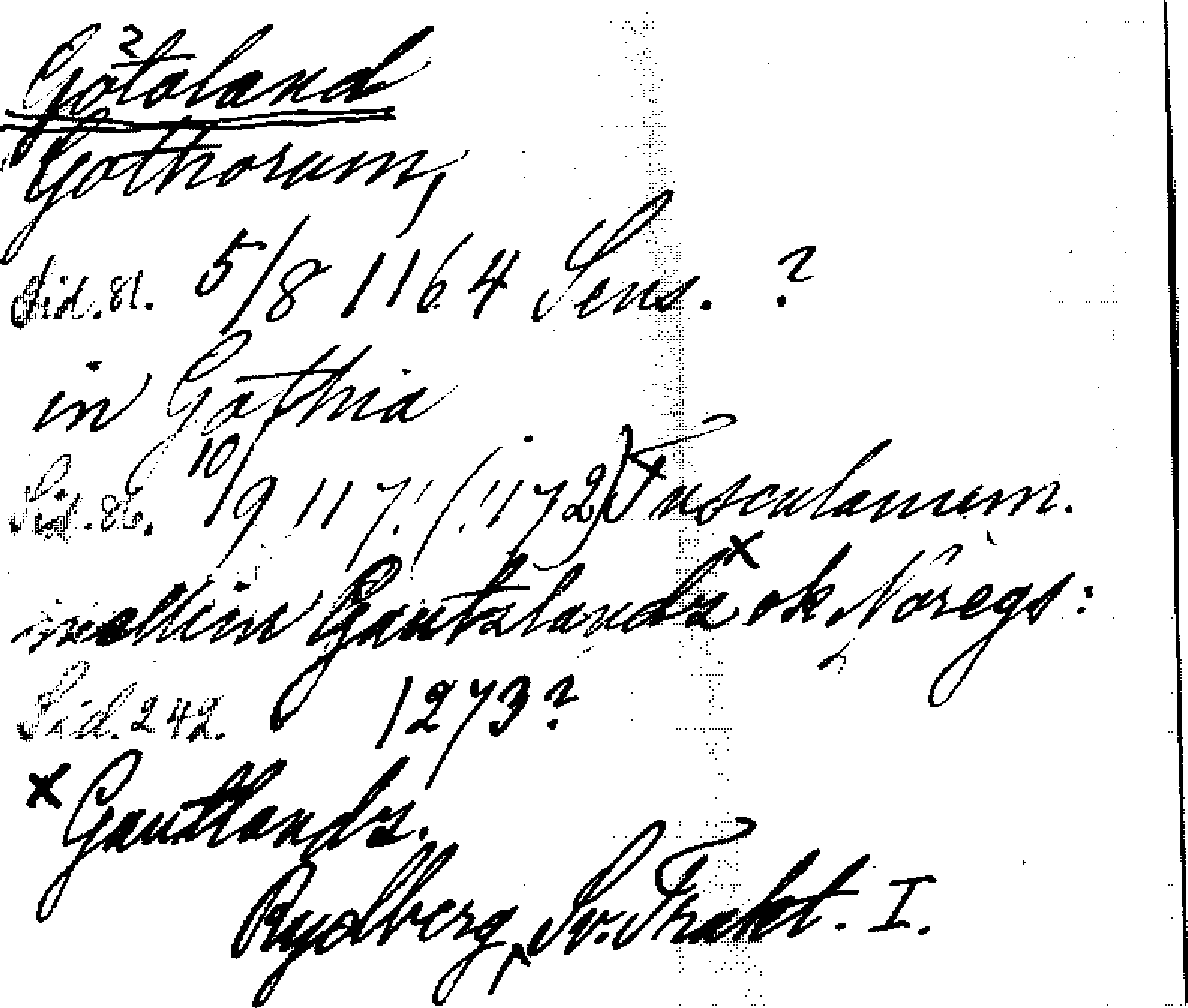 2
Götaland
Gothorum,
Sid. 81. 5/8 1164 Sens. ?
in Gothia
Sid. 86. 10/9 117! (!172) Tusculanum.
mellim Gautzlandz x ok Noregs:
Sid. 242. 1273?
x Gautlandz.
Rydberg, Sv. Trakt. I.